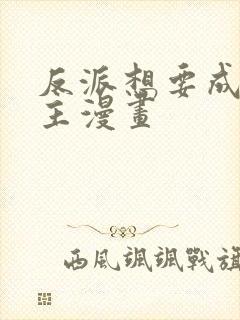 反派想要成
主漫畫
西風颯颯戰旗